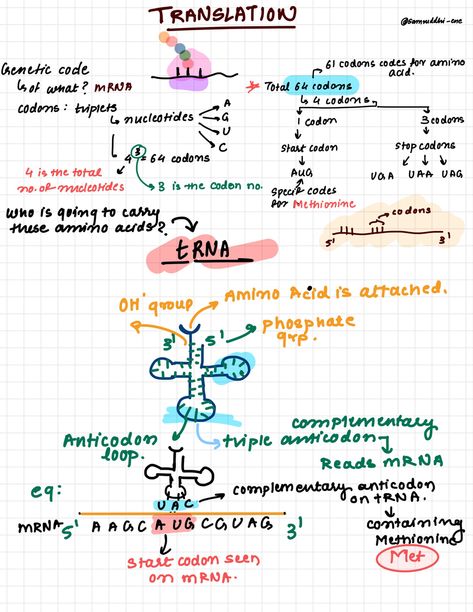 TRANSLATION
@samruddhi-one
Genetic code
↳ of what? mRNA
codons : triplets
↳ nucleotides
A
G
U
C
4³ = 64 codons
4 is the total
no. of nucleotides
3 is the codon no.
61 codons codes for amino
acid.
* Total 64 codons
↳ 4 codons
1 codon
start codon
AUG
Specific codes
for Methionine
3 codons
stop codons
UGA UAA UAG
codons
5' 3'
Who is going to carry
these amino acids?
tRNA
OH' group
Amino Acid is attached.
3' 5'
phosphate
grp.
Anticodon
loop.
triple anticodon
complementary
Reads mRNA
eq:
UAC
complementary anticodon
on tRNA.
containing
Methionine
Met
mRNA 5' A A G C A U G C G U A G 3'
start codon seen
on mRNA.